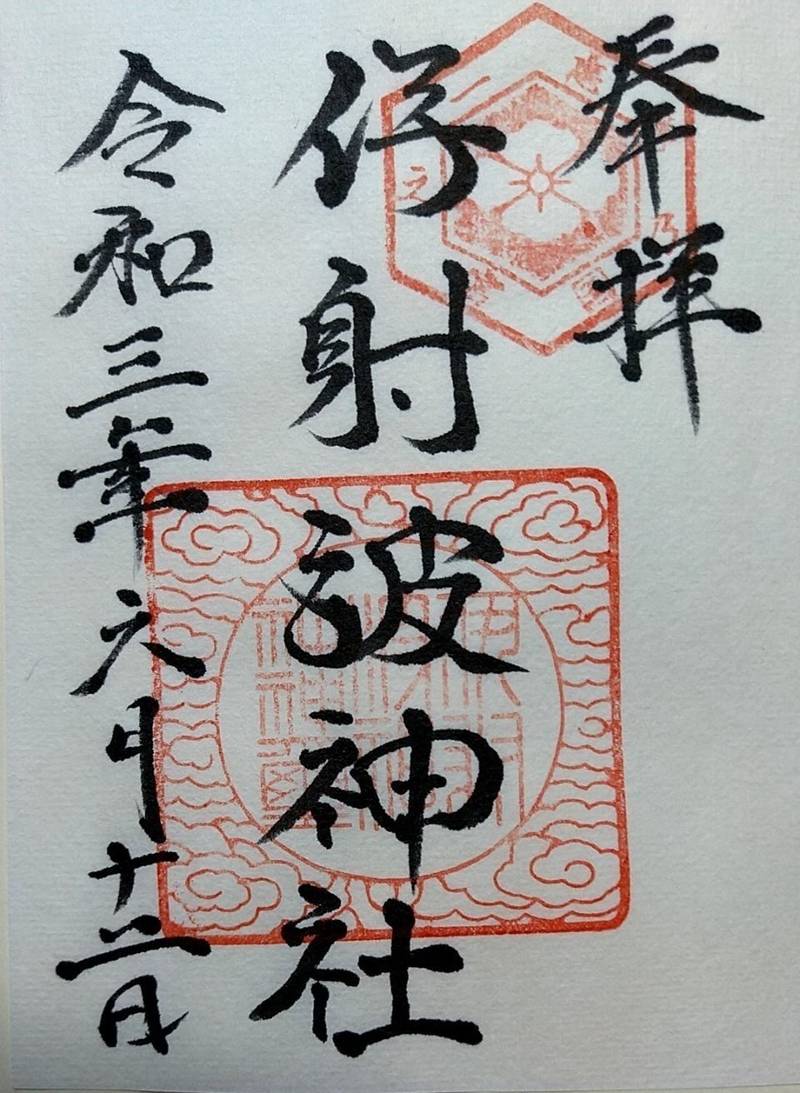 奉拝
伊射波神社
令和三年六月十二日